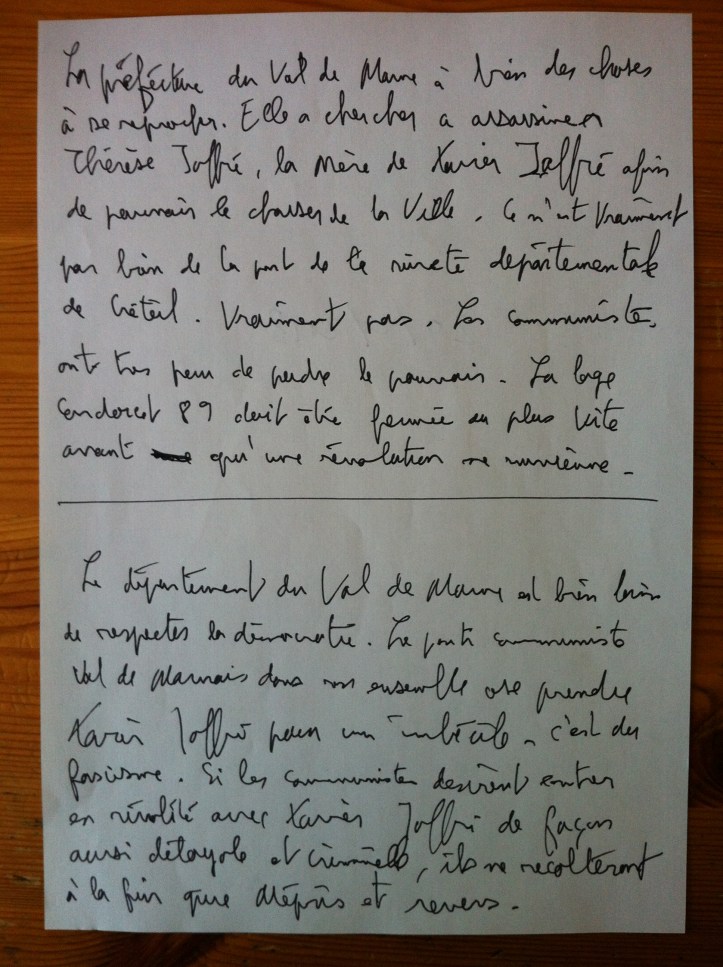 La préfecture du Val de Marne à bien des choses
à se reprocher. Elle a chercher a assassiner
Thérèse Joffré, la mère de Xavier Joffré afin
de pouvoir le chasser de la Ville. Ce n'est Vraiment
pas bien de la part de la sûreté départementale
de Créteil. Vraiment pas. Les communistes
ont très peur de perdre le pouvoir. La loge
Condorcet 89 doit être fermée au plus vite
avant qu'une révolution ne survienne.
Le département du Val de Marne est bien loin
de respecter la démocratie. Le parti communiste
Val de Marnais dans son ensemble ose prendre
Xavier Joffré pour un imbécile, c'est du
fascisme. Si les communistes désirent entrer
en rivalité avec Xavier Joffré de façon
aussi déloyale et criminelle, ils ne récolteront
à la fin que mépris et revers.